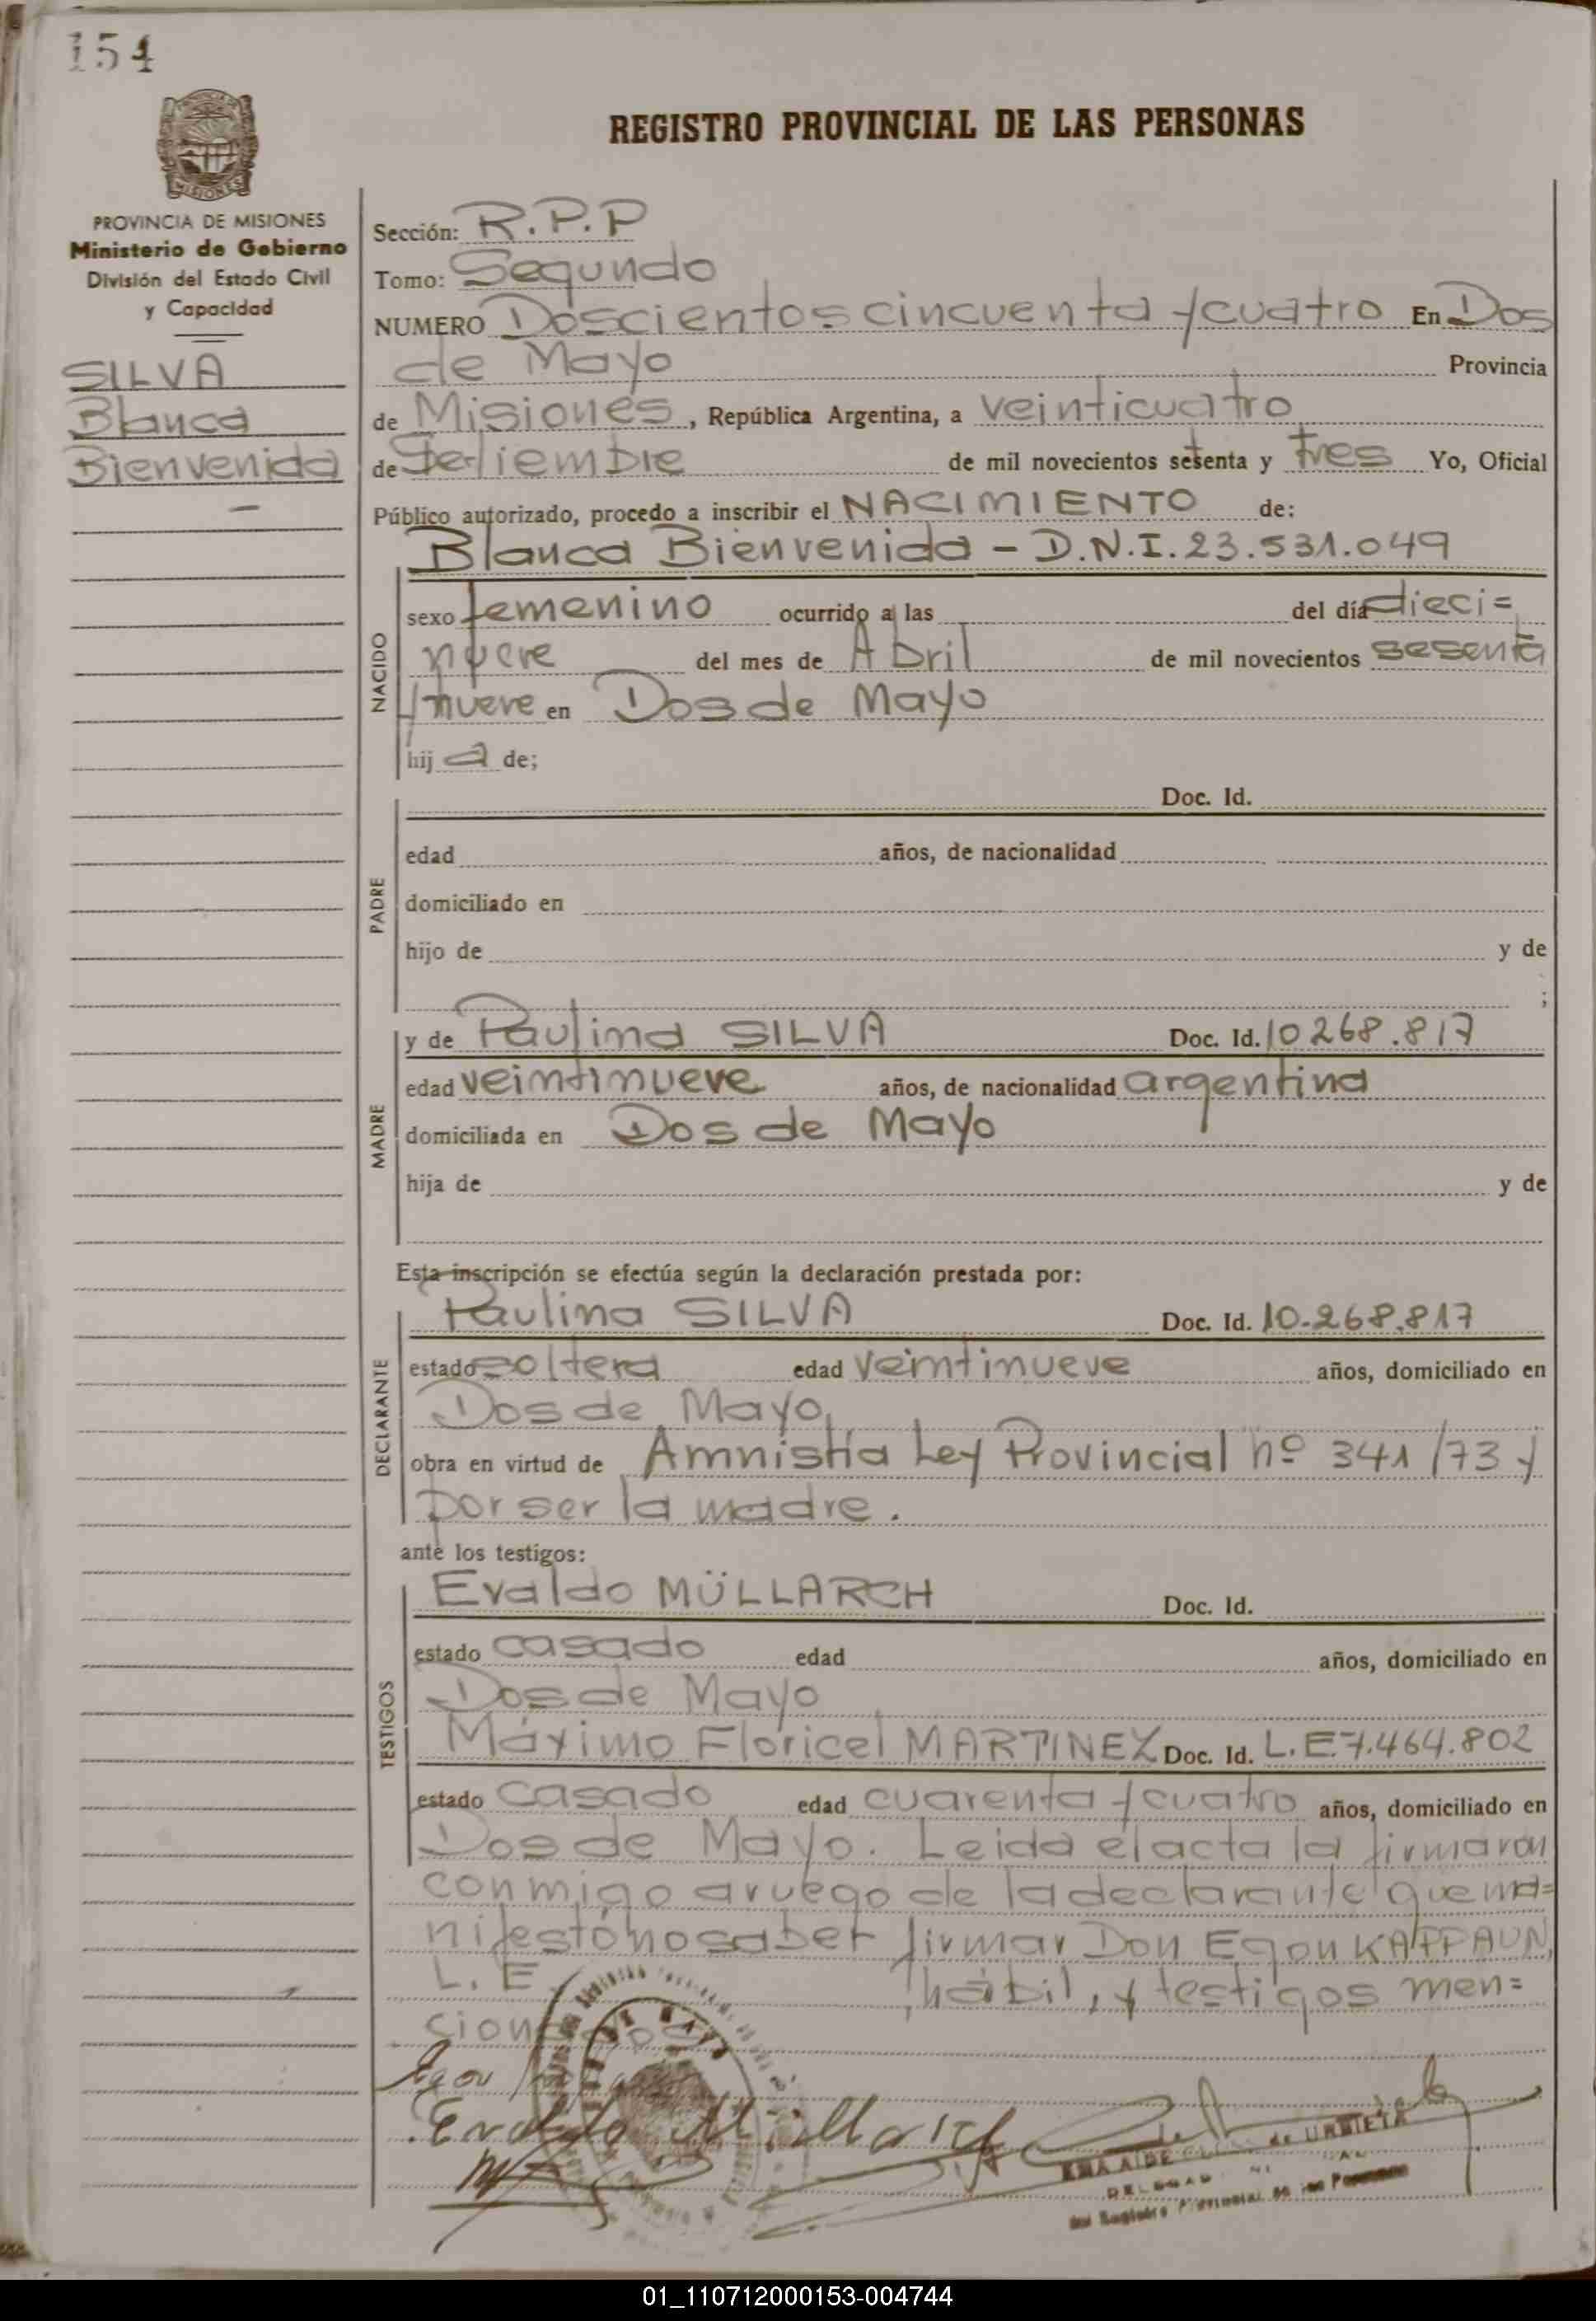 154
PROVINCIA DE MISIONES
Ministerio de Gobierno
División del Estado Civil
y Capacidad
SILVA
Blanca
Bienvenida
REGISTRO PROVINCIAL DE LAS PERSONAS
Sección: R.P.P
Tomo: Segundo
NUMERO Doscientos cincuenta y cuatro En Dos
de Mayo Provincia
de Misiones, República Argentina, a veinticuatro
de Setiembre de mil novecientos setenta y tres Yo, Oficial
Público autorizado, procedo a inscribir el NACIMIENTO de:
Blanca Bienvenida - D.N.I. 23.531.049
NACIDO
sexo femenino ocurrido a las del día dieci=
nueve del mes de Abril de mil novecientos sesenta
y nueve en Dos de Mayo
hij a de;
PADRE
Doc. Id.
edad años, de nacionalidad
domiciliado en
hijo de y de
;
MADRE
y de Paulina SILVA Doc. Id. 10268.817
edad veintinueve años, de nacionalidad argentina
domiciliada en Dos de Mayo
hija de y de
Esta inscripción se efectúa según la declaración prestada por:
DECLARANTE
Paulina SILVA Doc. Id. 10.268.817
estado soltera edad veintinueve años, domiciliado en
Dos de Mayo
obra en virtud de Amnistía Ley Provincial nº 341/73 y
por ser la madre.
ante los testigos:
TESTIGOS
Evaldo MÜLLARCH Doc. Id.
estado casado edad años, domiciliado en
Dos de Mayo
Máximo Floricel MARTINEZ Doc. Id. L.E 7.464.802
estado casado edad cuarenta y cuatro años, domiciliado en
Dos de Mayo. Leida el acta la firmaron
conmigo a ruego de la declarante que ma=
nifestó no saber firmar Don Egon KAPPAUN,
L. E. , hábil, y testigos men=
Evaldo Müllarch
de URBIETA
del Registro Provincial de las Personas
01_110712000153-004744